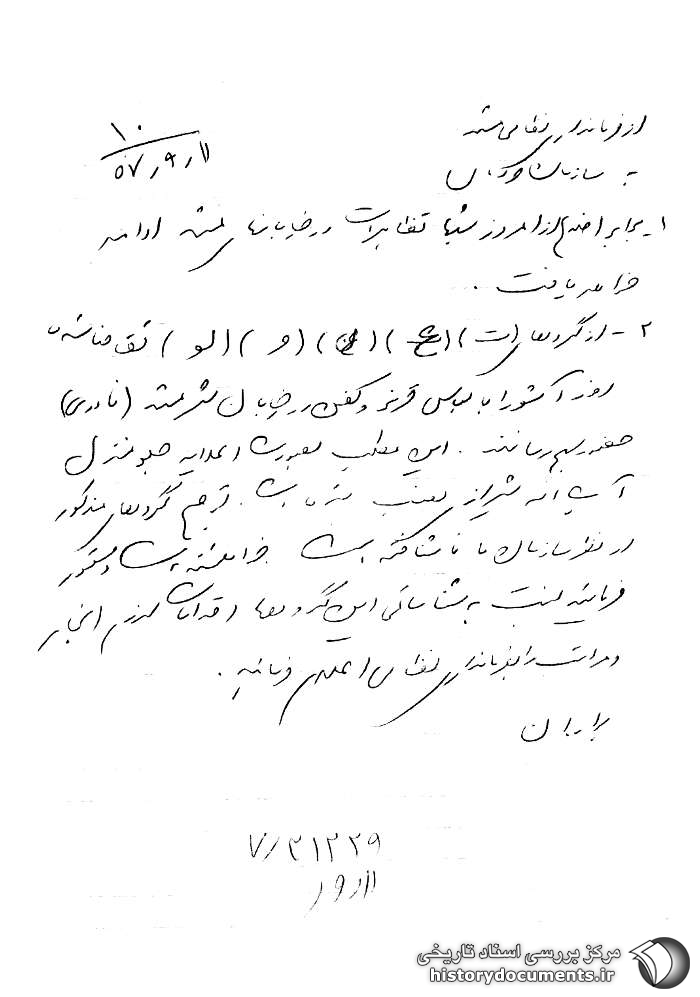 از فرمانداری نظامی مشهد
۱۰
به سازمان ساواک
۵۷/۹/۱۱
۱- برابر اطلاع از امروز شبها تظاهرات در خیابانهای مشهد ادامه
خواهد یافت.
۲- از گروههای (ت) (ع) ( ) (و) (لو) تقاضا شده
روز عاشورا با لباس قرمز و کفن در خیابان مشهد (نادری)
حضور بهم رسانند. این مطلب بصورت اعلامیه جلو منزل
آیت اله شیرازی نصب شده است. گروههای مذکور
از نظر سازمان ما ناشناخته است خواهشمند است دستور
فرمائید نسبت به شناسائی این گروهها اقدامات لازم انجام
و مراتب را بفرمانداری نظامی اعلام فرمائید.
۷/۳۱۲۲۹
مرکز بررسی اسناد تاریخی
historydocuments.ir